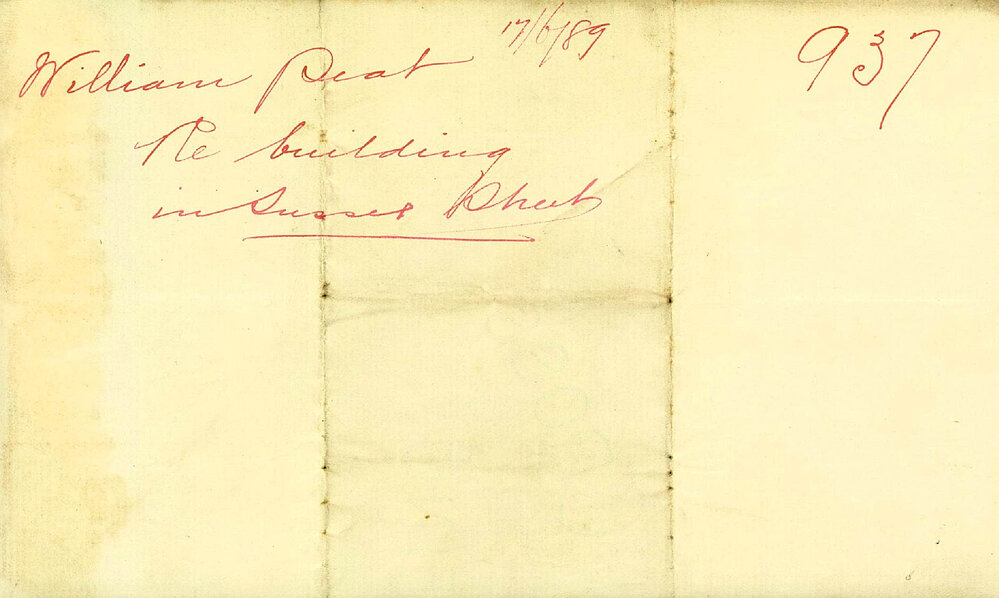 17/6/89
937
William Peat
Re building
in Sussex Street